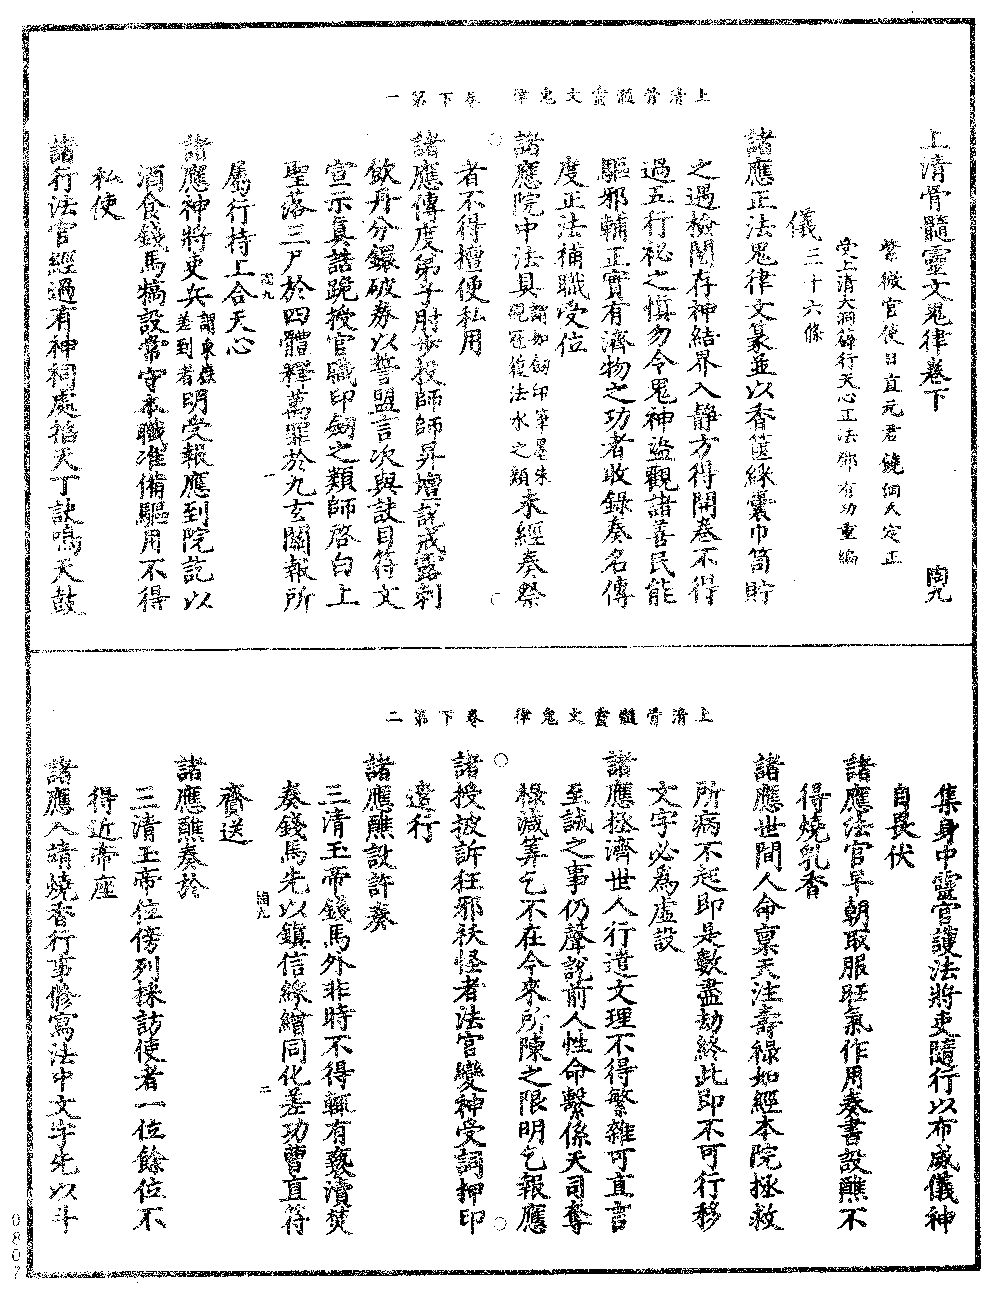 上清骨髓靈文鬼律 卷下第一
上清骨髓靈文鬼律卷下 陶九
紫微宮使日直元君饒洞天定正
受上清大洞籙行天心正法鄧有功重編
儀三十六條
諸應正法鬼律文篆並以香篋綵囊巾笥貯
之遇檢閱存神結界入靜方得開卷不得
過五行祕之慎勿令鬼神盜觀諸善民能
驅邪輔正實有濟物之功者收錄奏名傳
度正法補職受位
諸應院中法具謂如劒印筆墨朱硯冠履法水之類未經奏祭
者不得擅便私用
諸應傳度弟子肘步投師師昇壇說戒露刺
飲丹分鐶破券以誓盟言次與訣目符文
宣示真誥跪授官職印劒之類師啓白上
聖落三尸於四體釋萬罪於九玄關報所
屬行持上合天心
陶九 一
諸應神將吏兵謂東嶽差到者明受報應到院訖以
酒食錢馬犒設常守本職准備驅用不得
私使
諸行法官經過有神祠處掐天丁訣鳴天鼓
上清骨髓靈文鬼律 卷下第二
集身中靈官護法將吏隨行以布威儀神
自畏伏
諸應法官早朝取服旺氣作用奏書設醮不
得燒乳香
諸應世間人命稟天注壽祿如經本院拯救
所病不起即是數盡劫終此即不可行移
文字必為虛設
諸應拯濟世人行遣文理不得繁雜可直言
至誠之事仍聲說前人性命繫係天司奪
祿減筭乞不在今來所陳之限明乞報應
諸授披訴狂邪袄怪者法官變神受詞押印
遣行
諸應醮設許奏
三清玉帝錢馬外非時不得輒有褻瀆焚
奏錢馬先以鎮信綵繒同化差功曹直符
賷送
陶九 二
諸應醮奏於
三清玉帝位傍列採訪使者一位餘位不
得近帝座
諸應入靖燒香行事修寫法中文字先以斗
0807